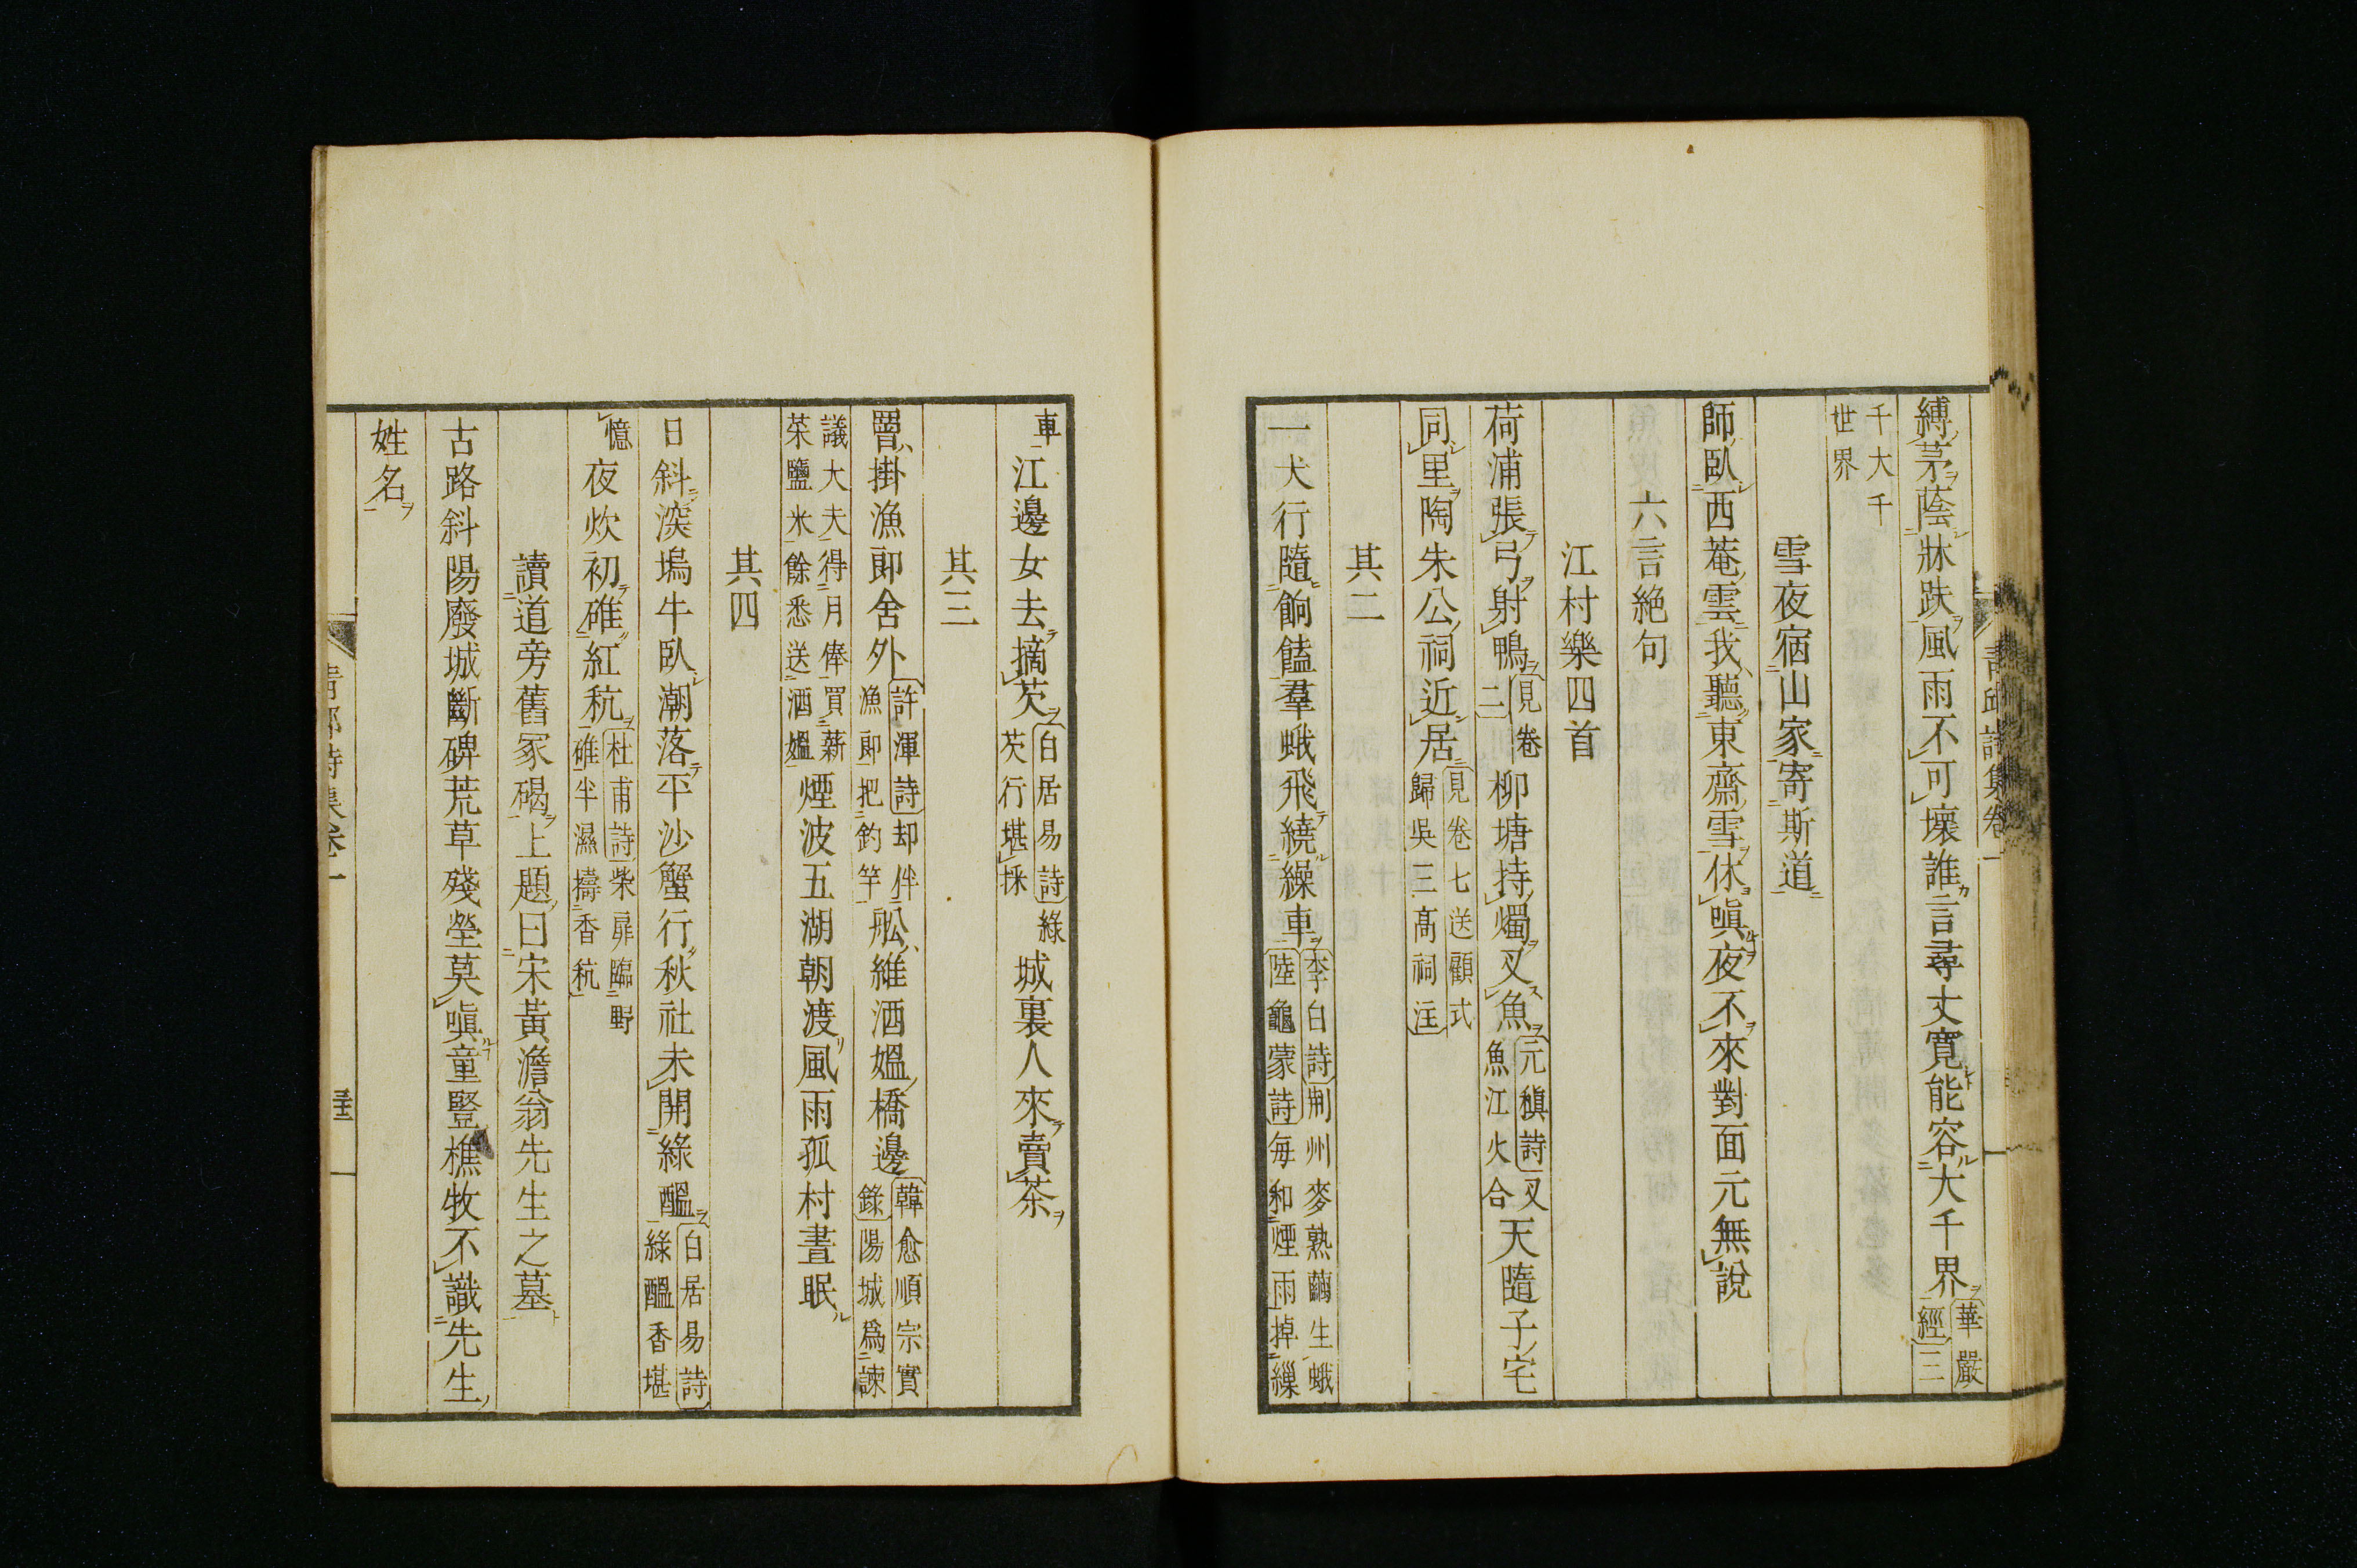 縛茅蔭牀趺風雨不可壞誰言尋丈寛能容大千界華嚴經三
千大千世界
雪夜宿山家寄斯道
師臥西菴雲我聽東齋雪休嗔夜不來對面元無說
六言絶句
江村樂四首
荷浦張弓射鴨見卷二柳塘持燭叉魚元稹詩叉魚江火合天隨子宅
同里陶朱公祠近居見卷七送顧式歸吳三髙祠注
其二
一犬行隨餉饁羣蛾飛繞繰車李白詩荆州麥熟繭生蛾陸龜蒙詩每和煙雨掉繅
車江邊女去摘茨白居易詩綠茨行堪採城裏人來賣茶
其三
罾掛漁郎舍外許渾詩却伴漁郎把釣竿舩維酒媼橋邊韓愈順宗實錄陽城爲諫
議大夫得月俸買薪菜鹽米餘悉送酒媼煙波五湖朝渡風雨孤村晝眠
其四
日斜深塢牛臥潮落平沙蟹行秋社未開綠醞白居易詩綠醞香堪
憶夜炊初碓紅秔杜甫詩柴扉臨野碓半濕擣香秔
讀道旁舊冢碣上題曰宋黃澹翁先生之墓
古路斜陽廢城斷碑荒草殘塋莫嗔童豎樵牧不識先生
姓名